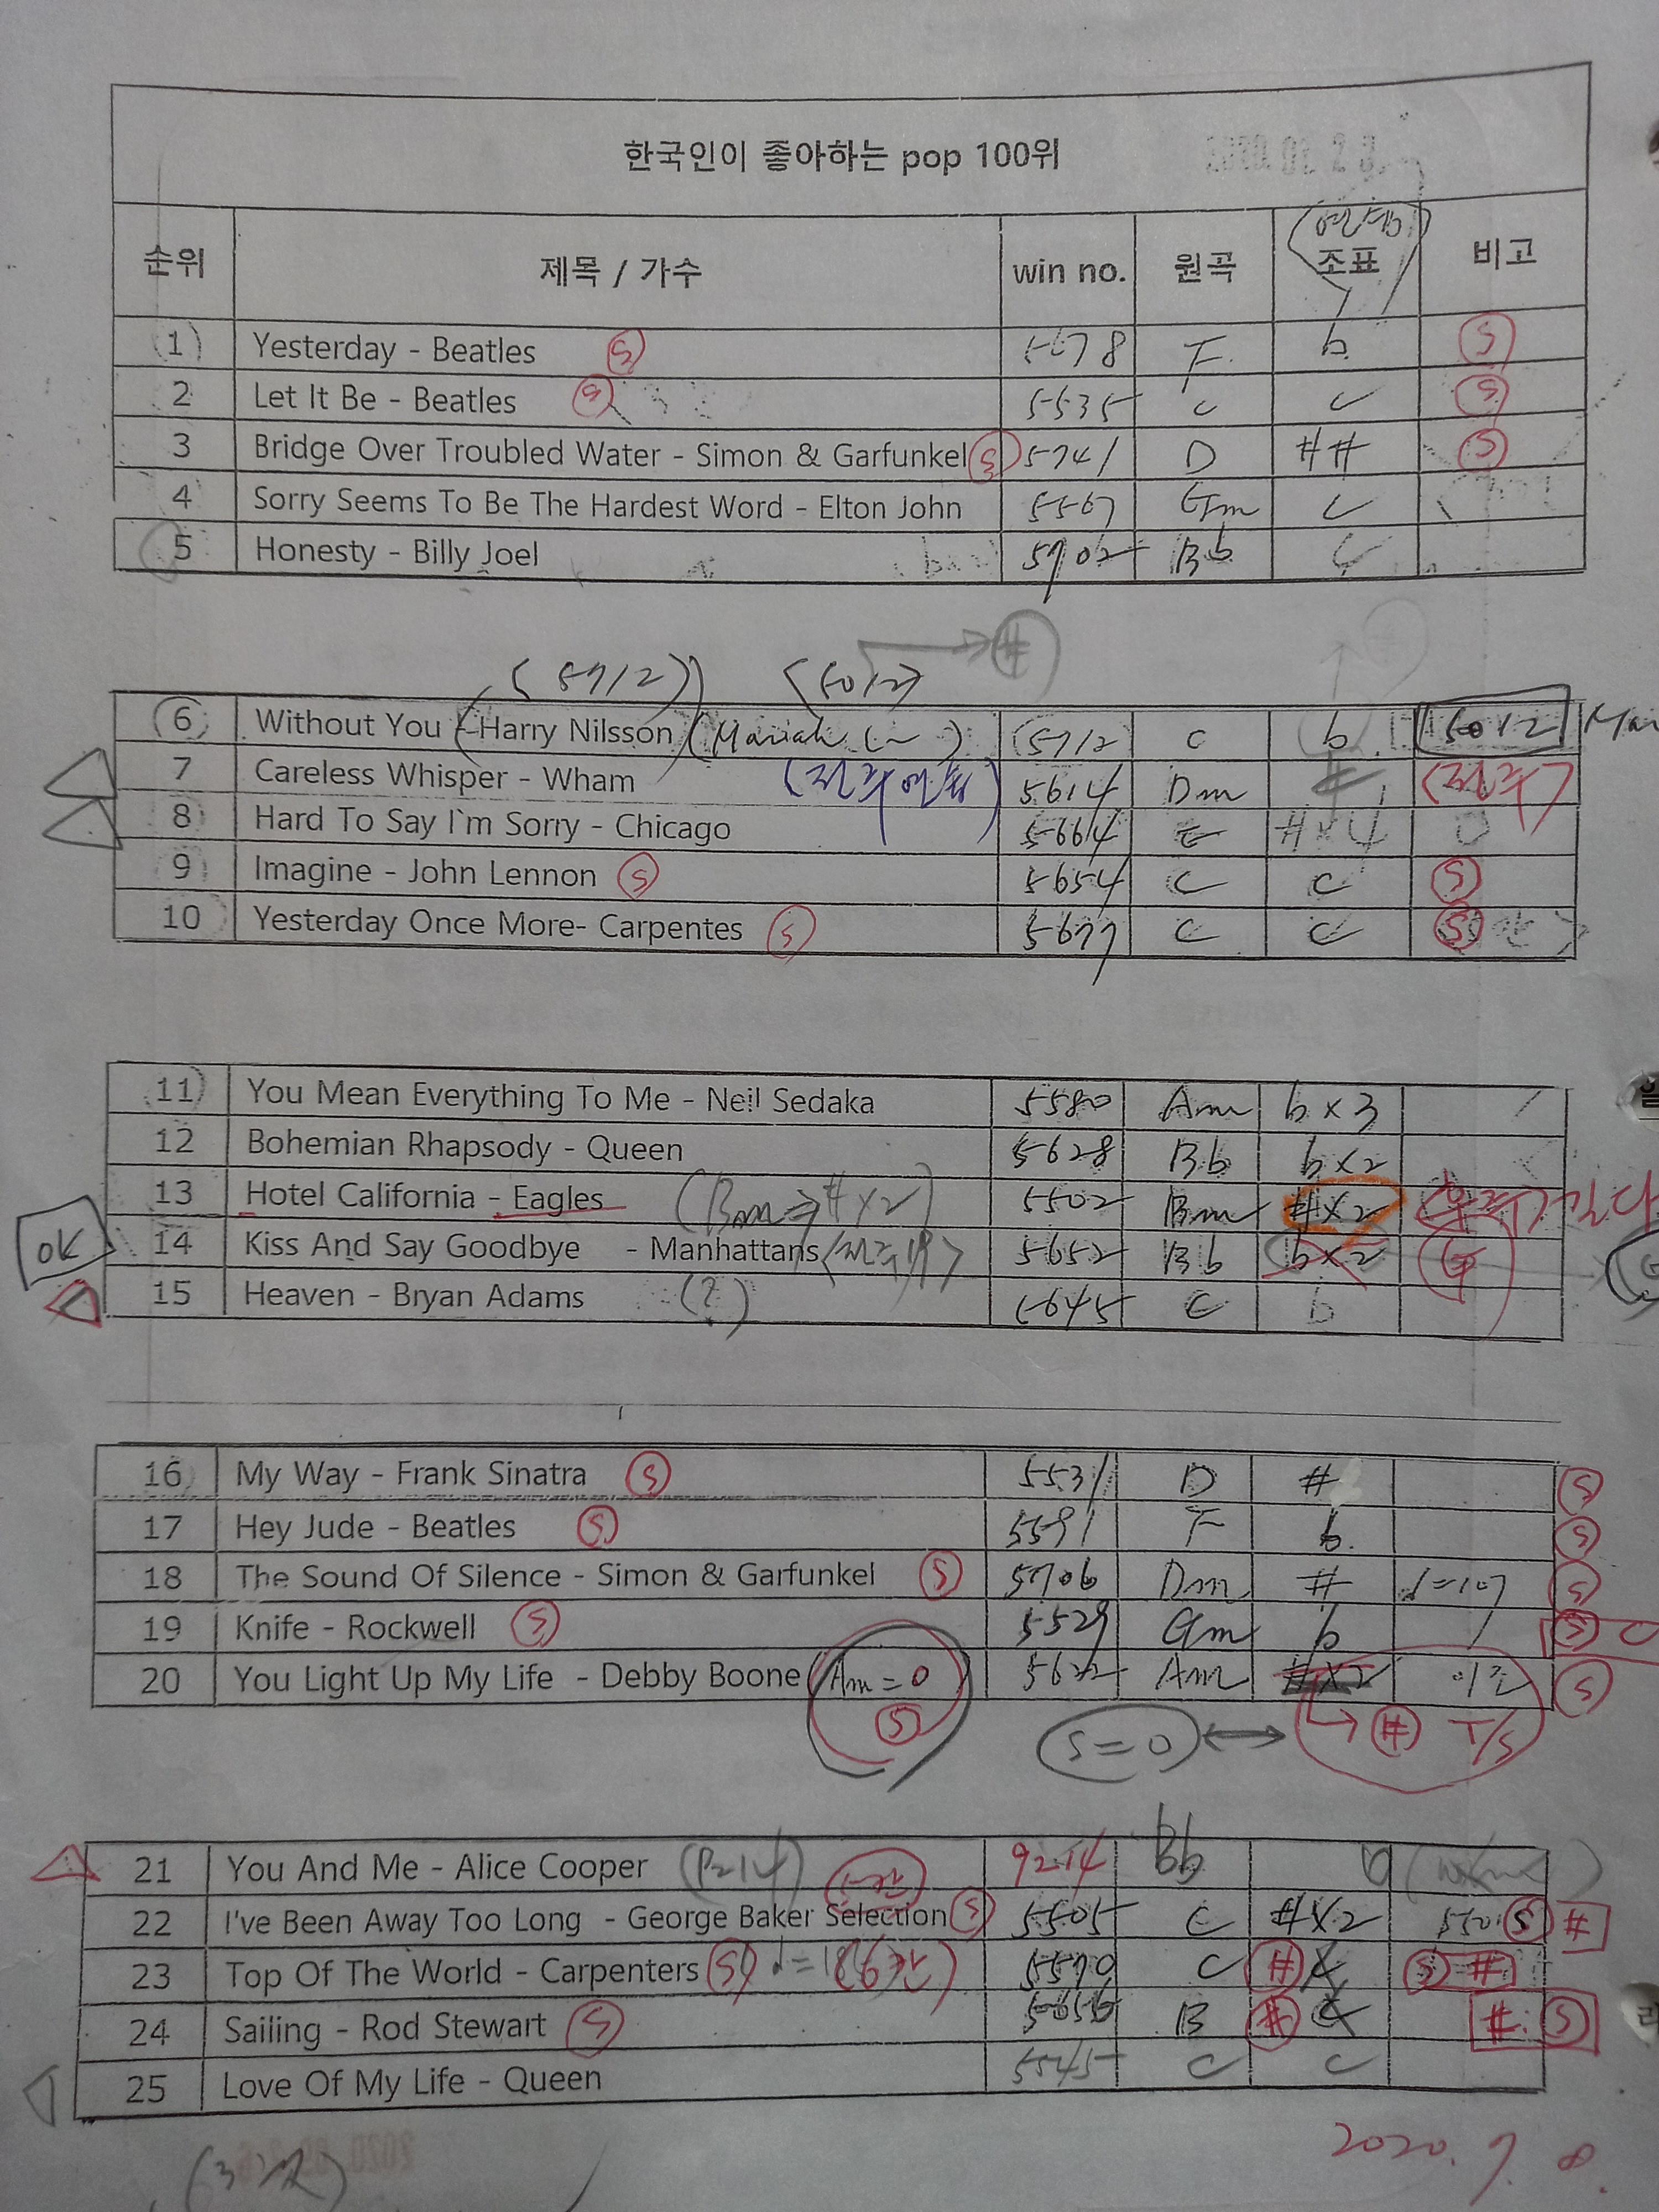 한국인이 좋아하는 pop 100위
순위 제목 / 가수 win no. 원곡 조표 비고
1 Yesterday - Beatles S 5678 F b S
2 Let It Be - Beatles S 5535 C C S
3 Bridge Over Troubled Water - Simon & Garfunkel S 5741 D ## S
4 Sorry Seems To Be The Hardest Word - Elton John 5567 Gm C
5 Honesty - Billy Joel 5702 Bb C
(5712) (5012) #
6 Without You - Harry Nilsson (Mariah (~) (5712) C b 5012
7 Careless Whisper - Wham 5614 Dm # (전주)
8 Hard To Say I`m Sorry - Chicago 5664 E #×4
9 Imagine - John Lennon S 5654 C C S
10 Yesterday Once More- Carpentes S 5677 C C S
11 You Mean Everything To Me - Neil Sedaka 5580 Am b×3
12 Bohemian Rhapsody - Queen 5628 Bb b×2
13 Hotel California - Eagles (Bm⇒#×2) 5502 Bm #×2
OK 14 Kiss And Say Goodbye - Manhattans 5652 Bb b×2 G
15 Heaven - Bryan Adams (?) 5645 C b
16 My Way - Frank Sinatra S 5531 D # S
17 Hey Jude - Beatles S 5591 F b S
18 The Sound Of Silence - Simon & Garfunkel S 5706 Dm # ♩=107 S
19 Knife - Rockwell S 5529 Gm b S
20 You Light Up My Life - Debby Boone Am=0 S 5622 Am #×2 S
S=0 ↔ → # T/S
21 You And Me - Alice Cooper (P214) 9214 Bb b
22 I've Been Away Too Long - George Baker Selection S 5505 C #×2 S #
23 Top Of The World - Carpenters S 5570 C # C S #
24 Sailing - Rod Stewart S 5656 B # C # S
25 Love Of My Life - Queen 5545 C C
2020. 7. 8.